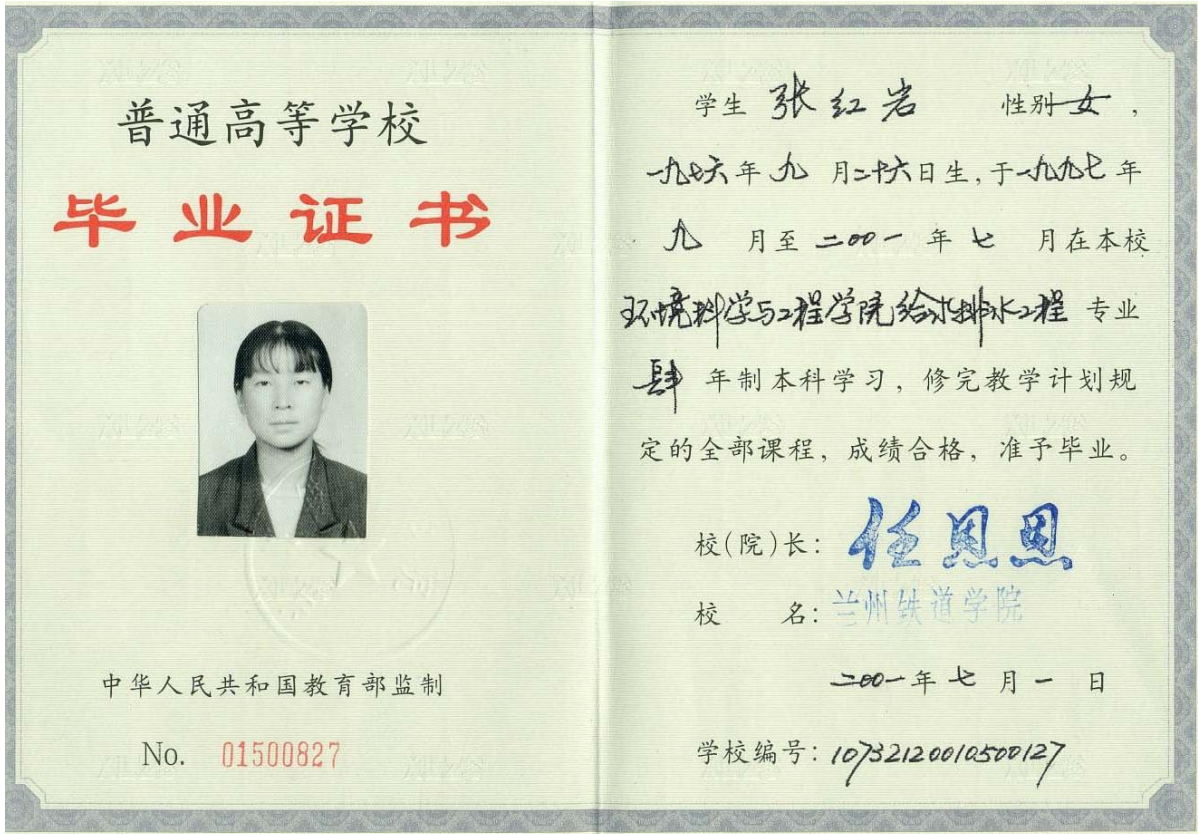 普通高等学校
毕业证书
中华人民共和国教育部监制
No. 01500827
学生 张红岩 性别 女，
一九七六年九月二十六日生，于一九九七年
九月至二〇〇一年七月在本校
环境科学与工程学院给水排水工程专业
肆年制本科学习，修完教学计划规
定的全部课程，成绩合格，准予毕业。
校（院）长：任恩恩
校名：兰州铁道学院
二〇〇一年七月一日
学校编号：10732120010500127